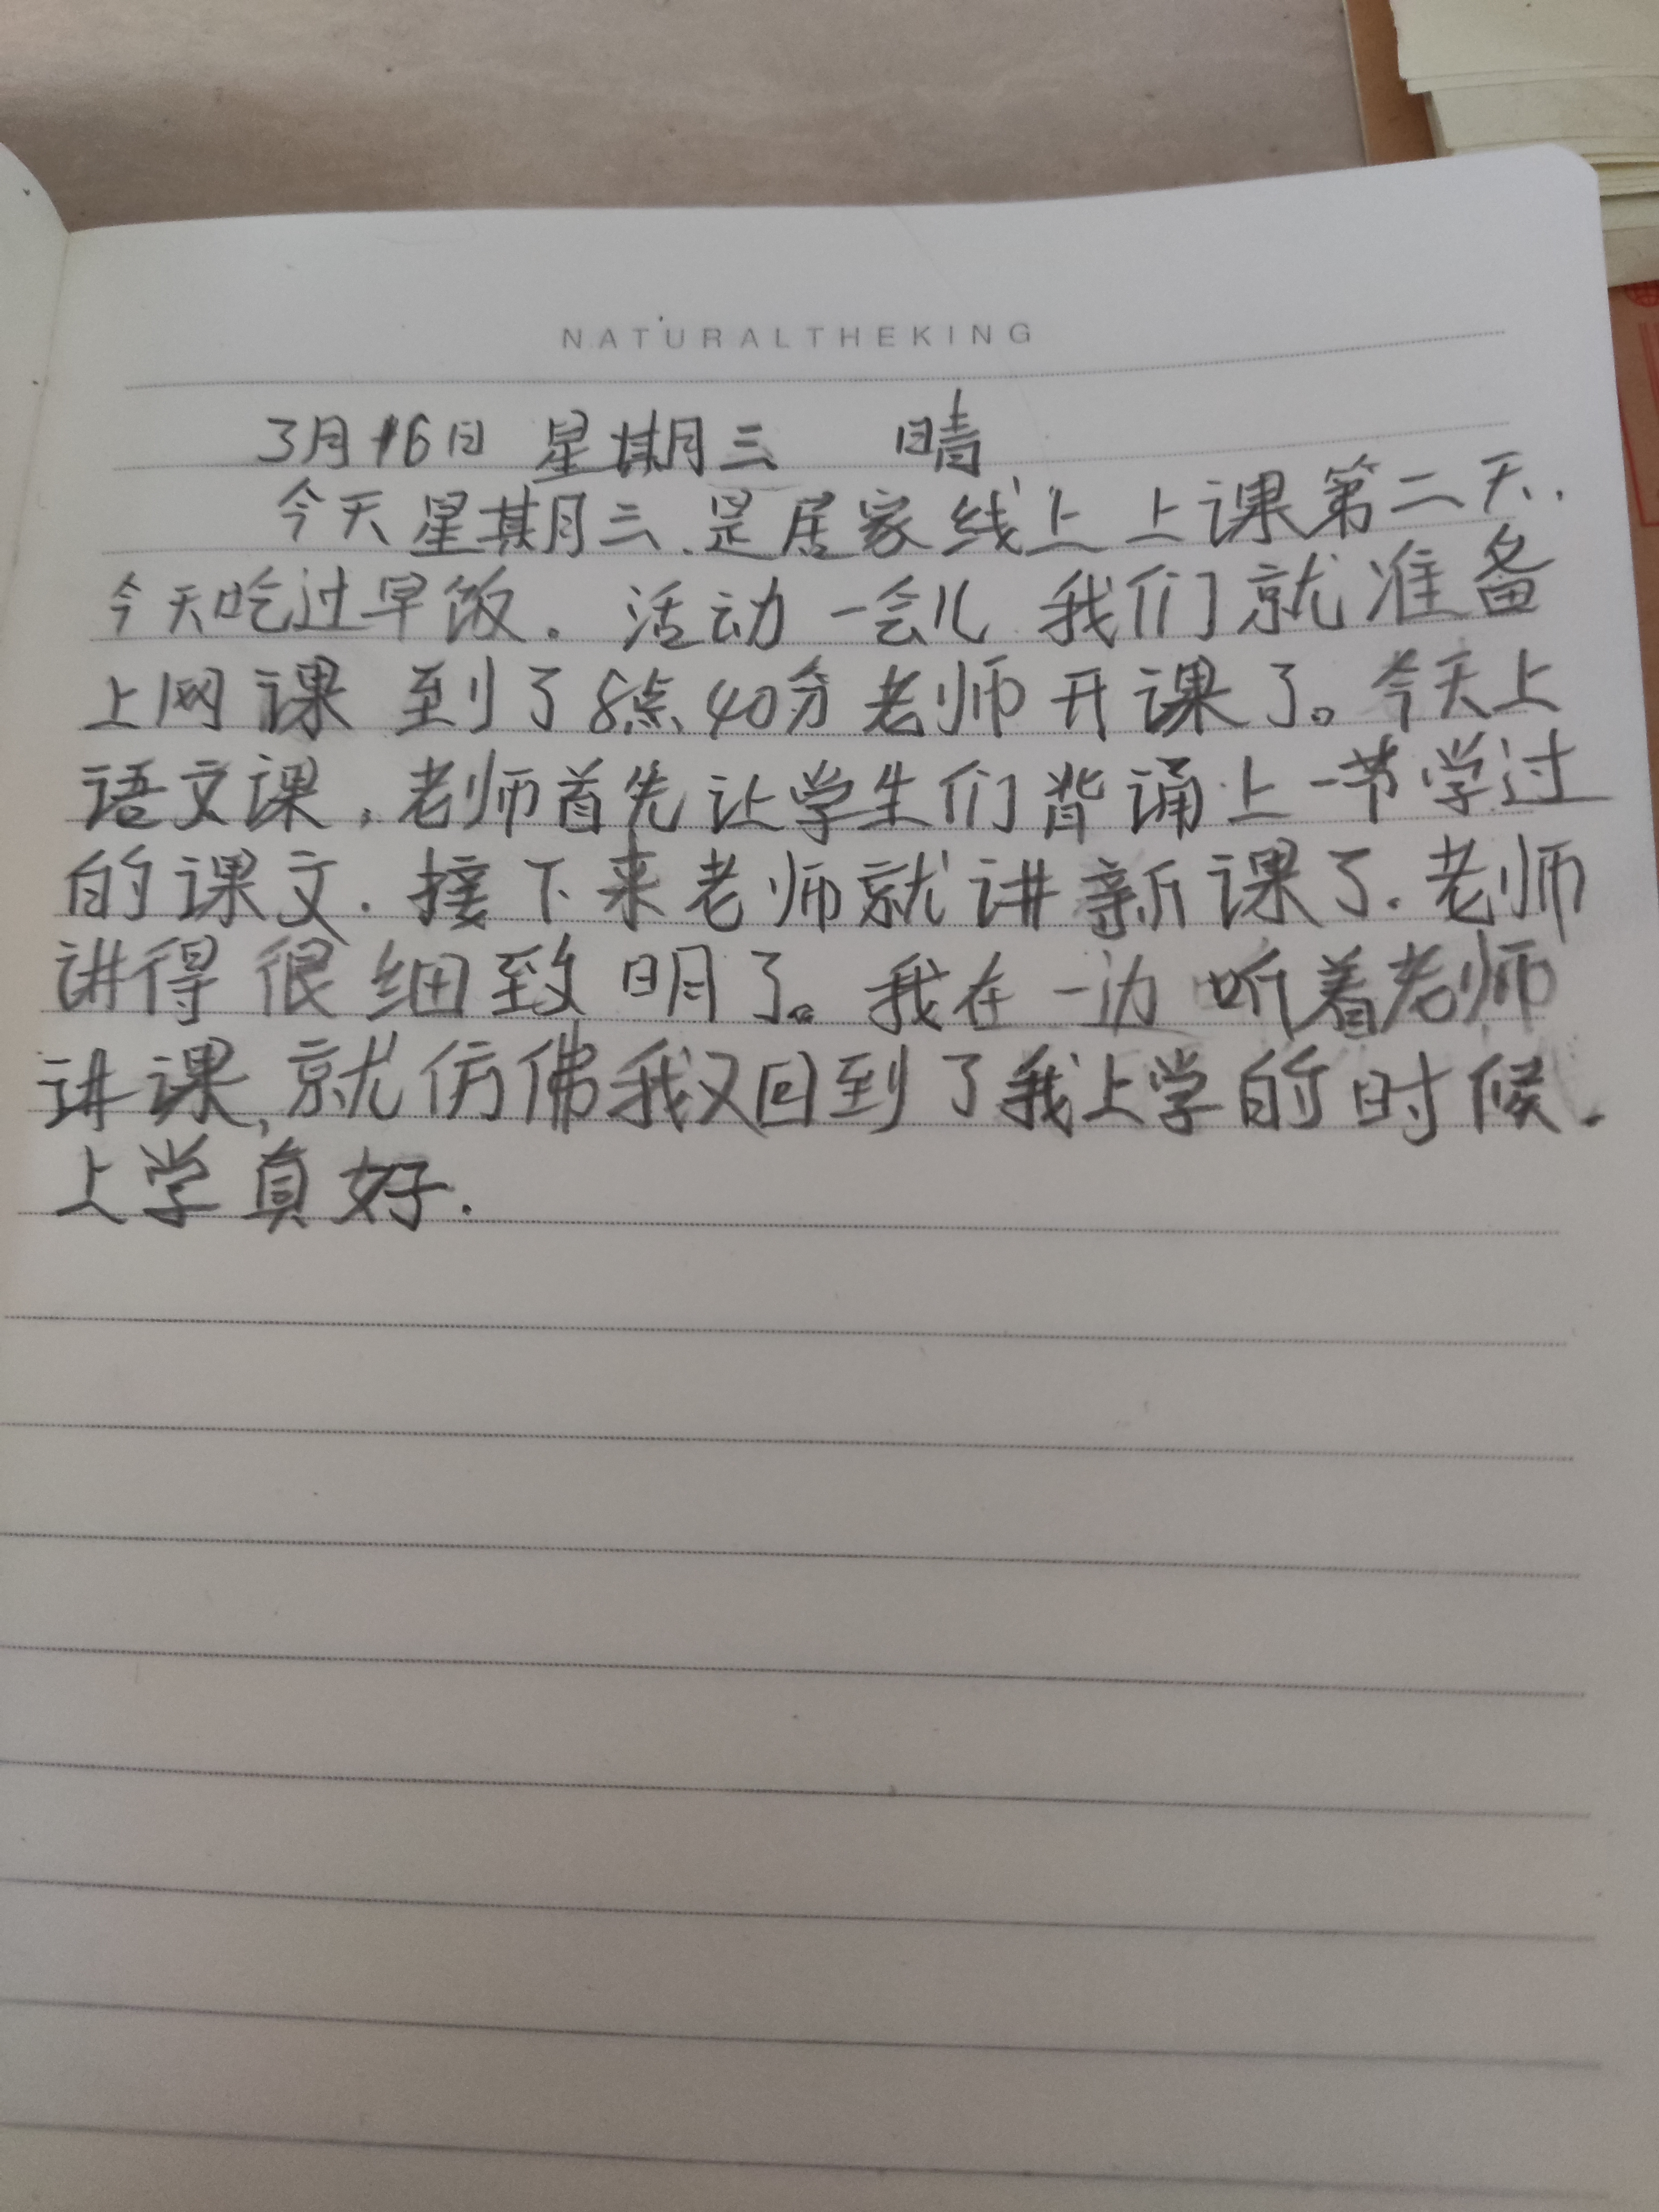 NATURALTHEKING
3月16日 星期三 晴
今天星期三.是居家线上上课第二天.
今天吃过早饭.活动一会儿 我们就准备
上网课 到了8点40分老师开课了。今天上
语文课.老师首先让学生们背诵上一节学过
的课文.接下来老师就讲新课了.老师
讲得很细致明了。我在一边听着老师
讲课,就仿佛我又回到了我上学的时候.
上学真好.